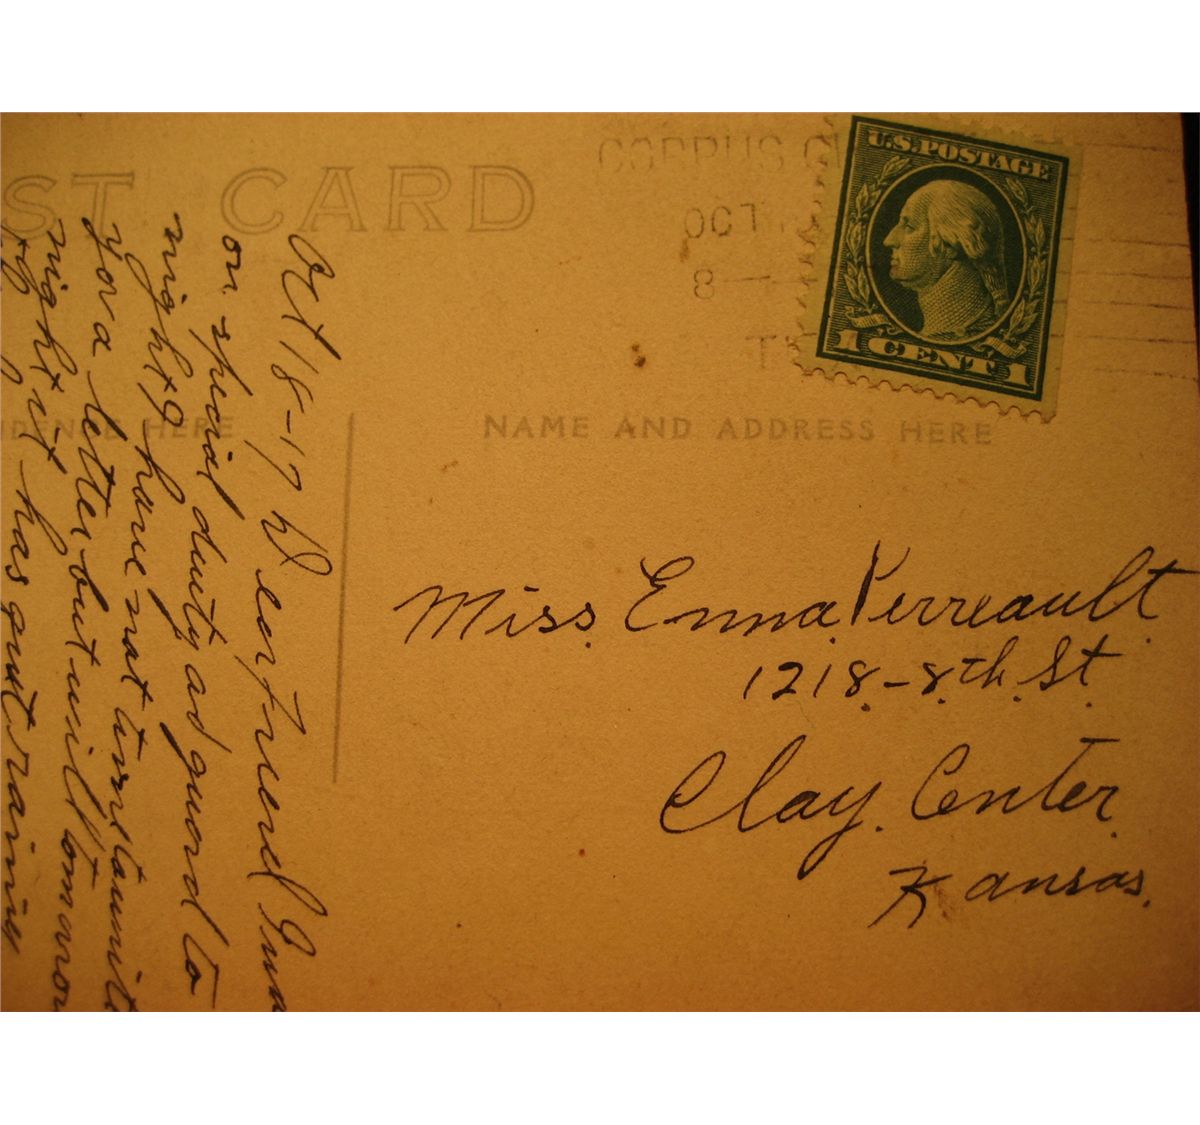 ST CARD
CORPUS
OCT
8
U.S. POSTAGE
1 CENT 1
DENCE HERE
NAME AND ADDRESS HERE
Oct 18-17 Dear Friend
on special duty as guard to
night I have not time to write
you a letter but will tomorrow
night it has quit raining
Miss Emma Perreault.
1218-8th. St
Clay. Center.
Kansas.